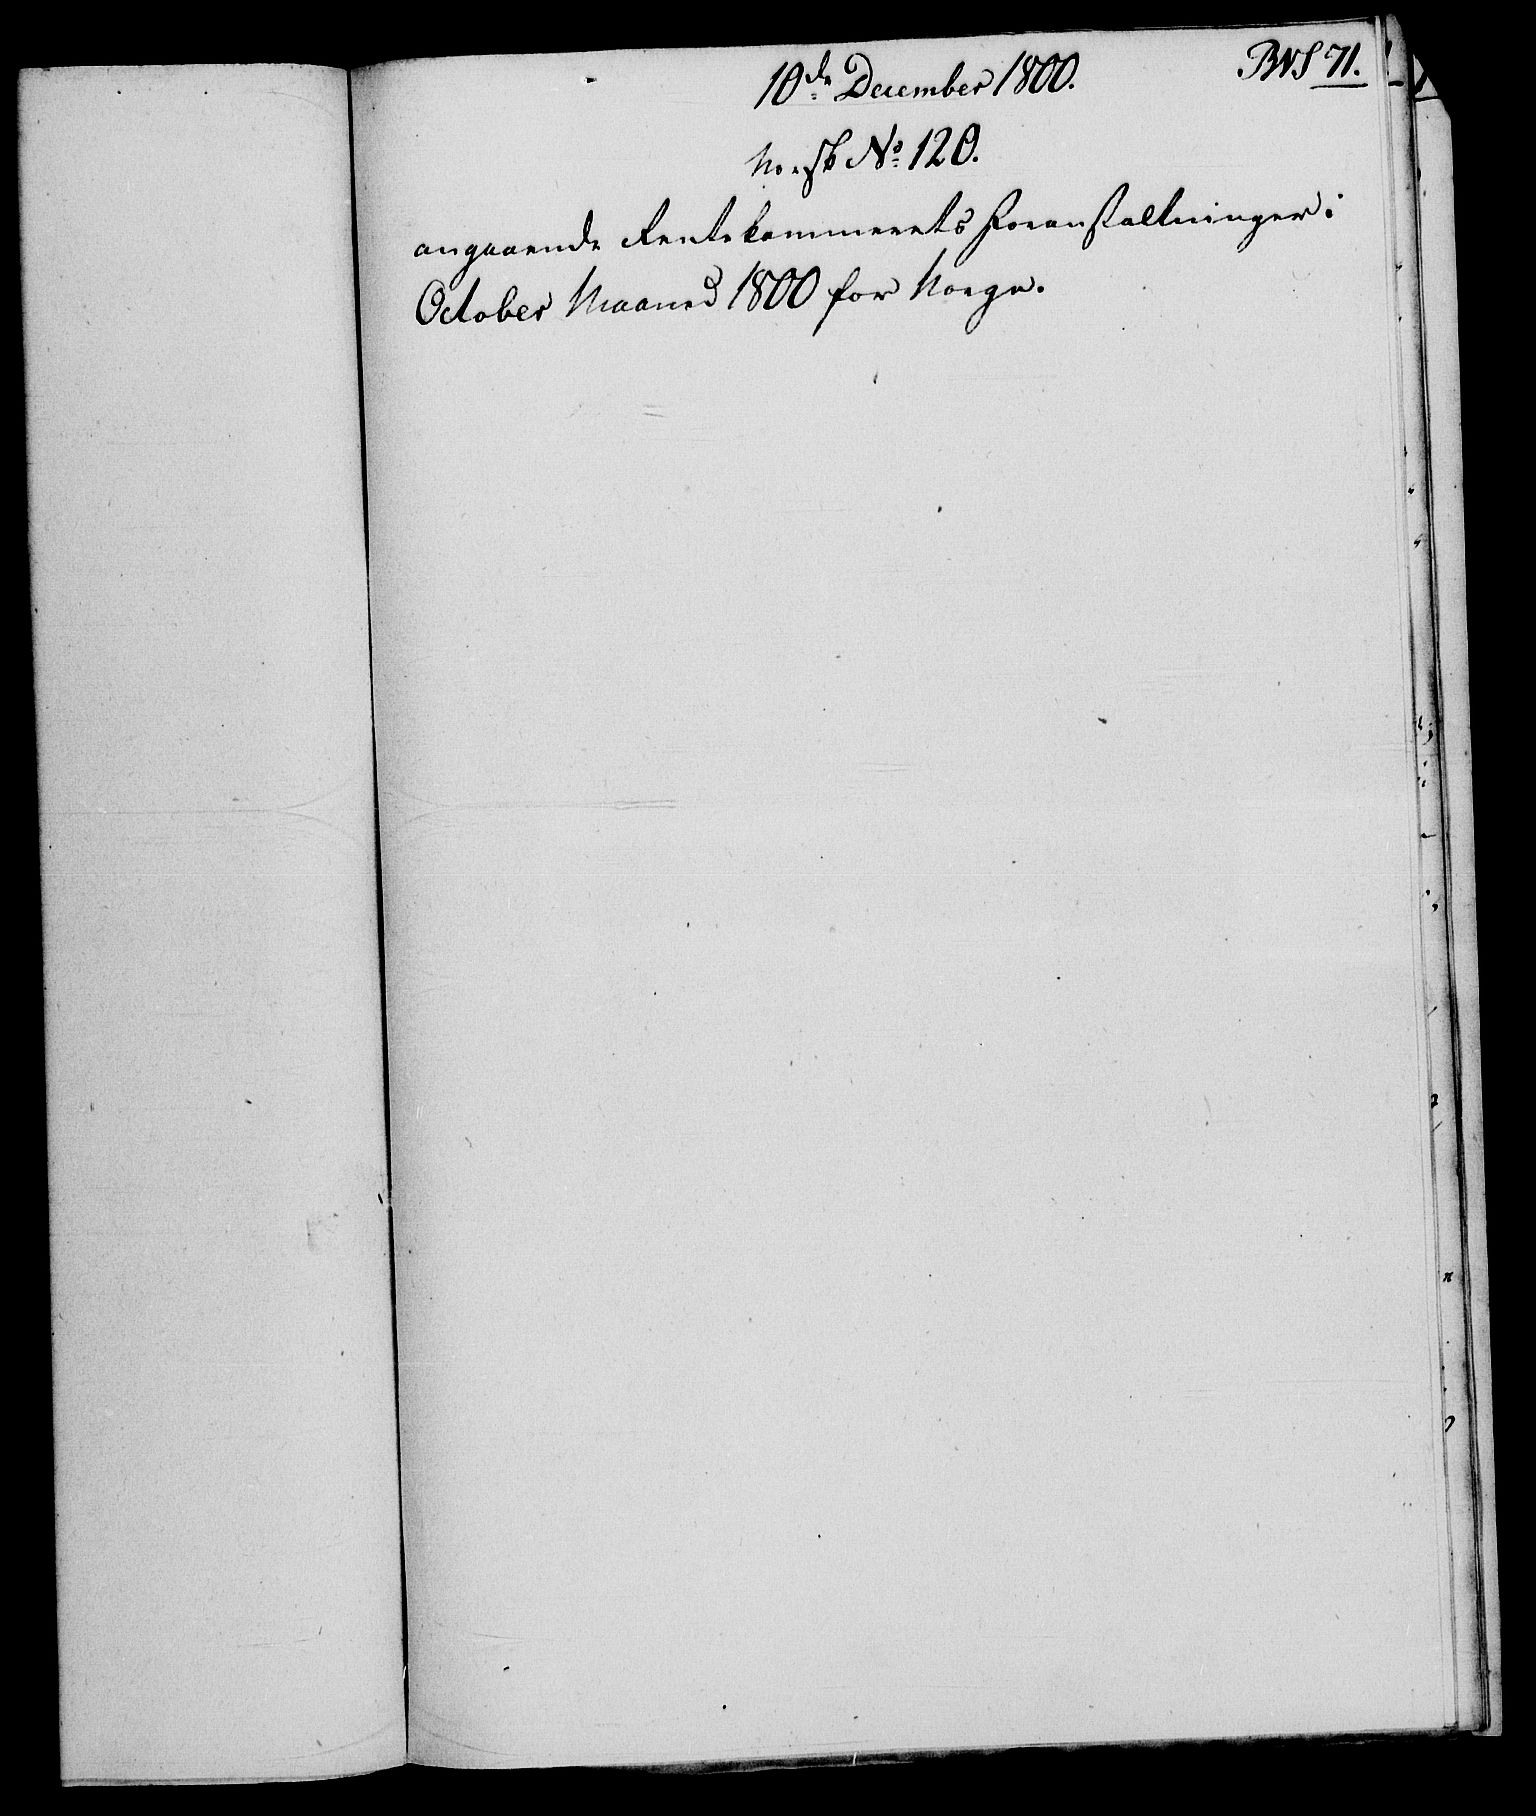 10de December 1800.
Norsk No 120.
angaaende Rentekammerets Foranstaltninger i
October Maaned 1800 for Norge.